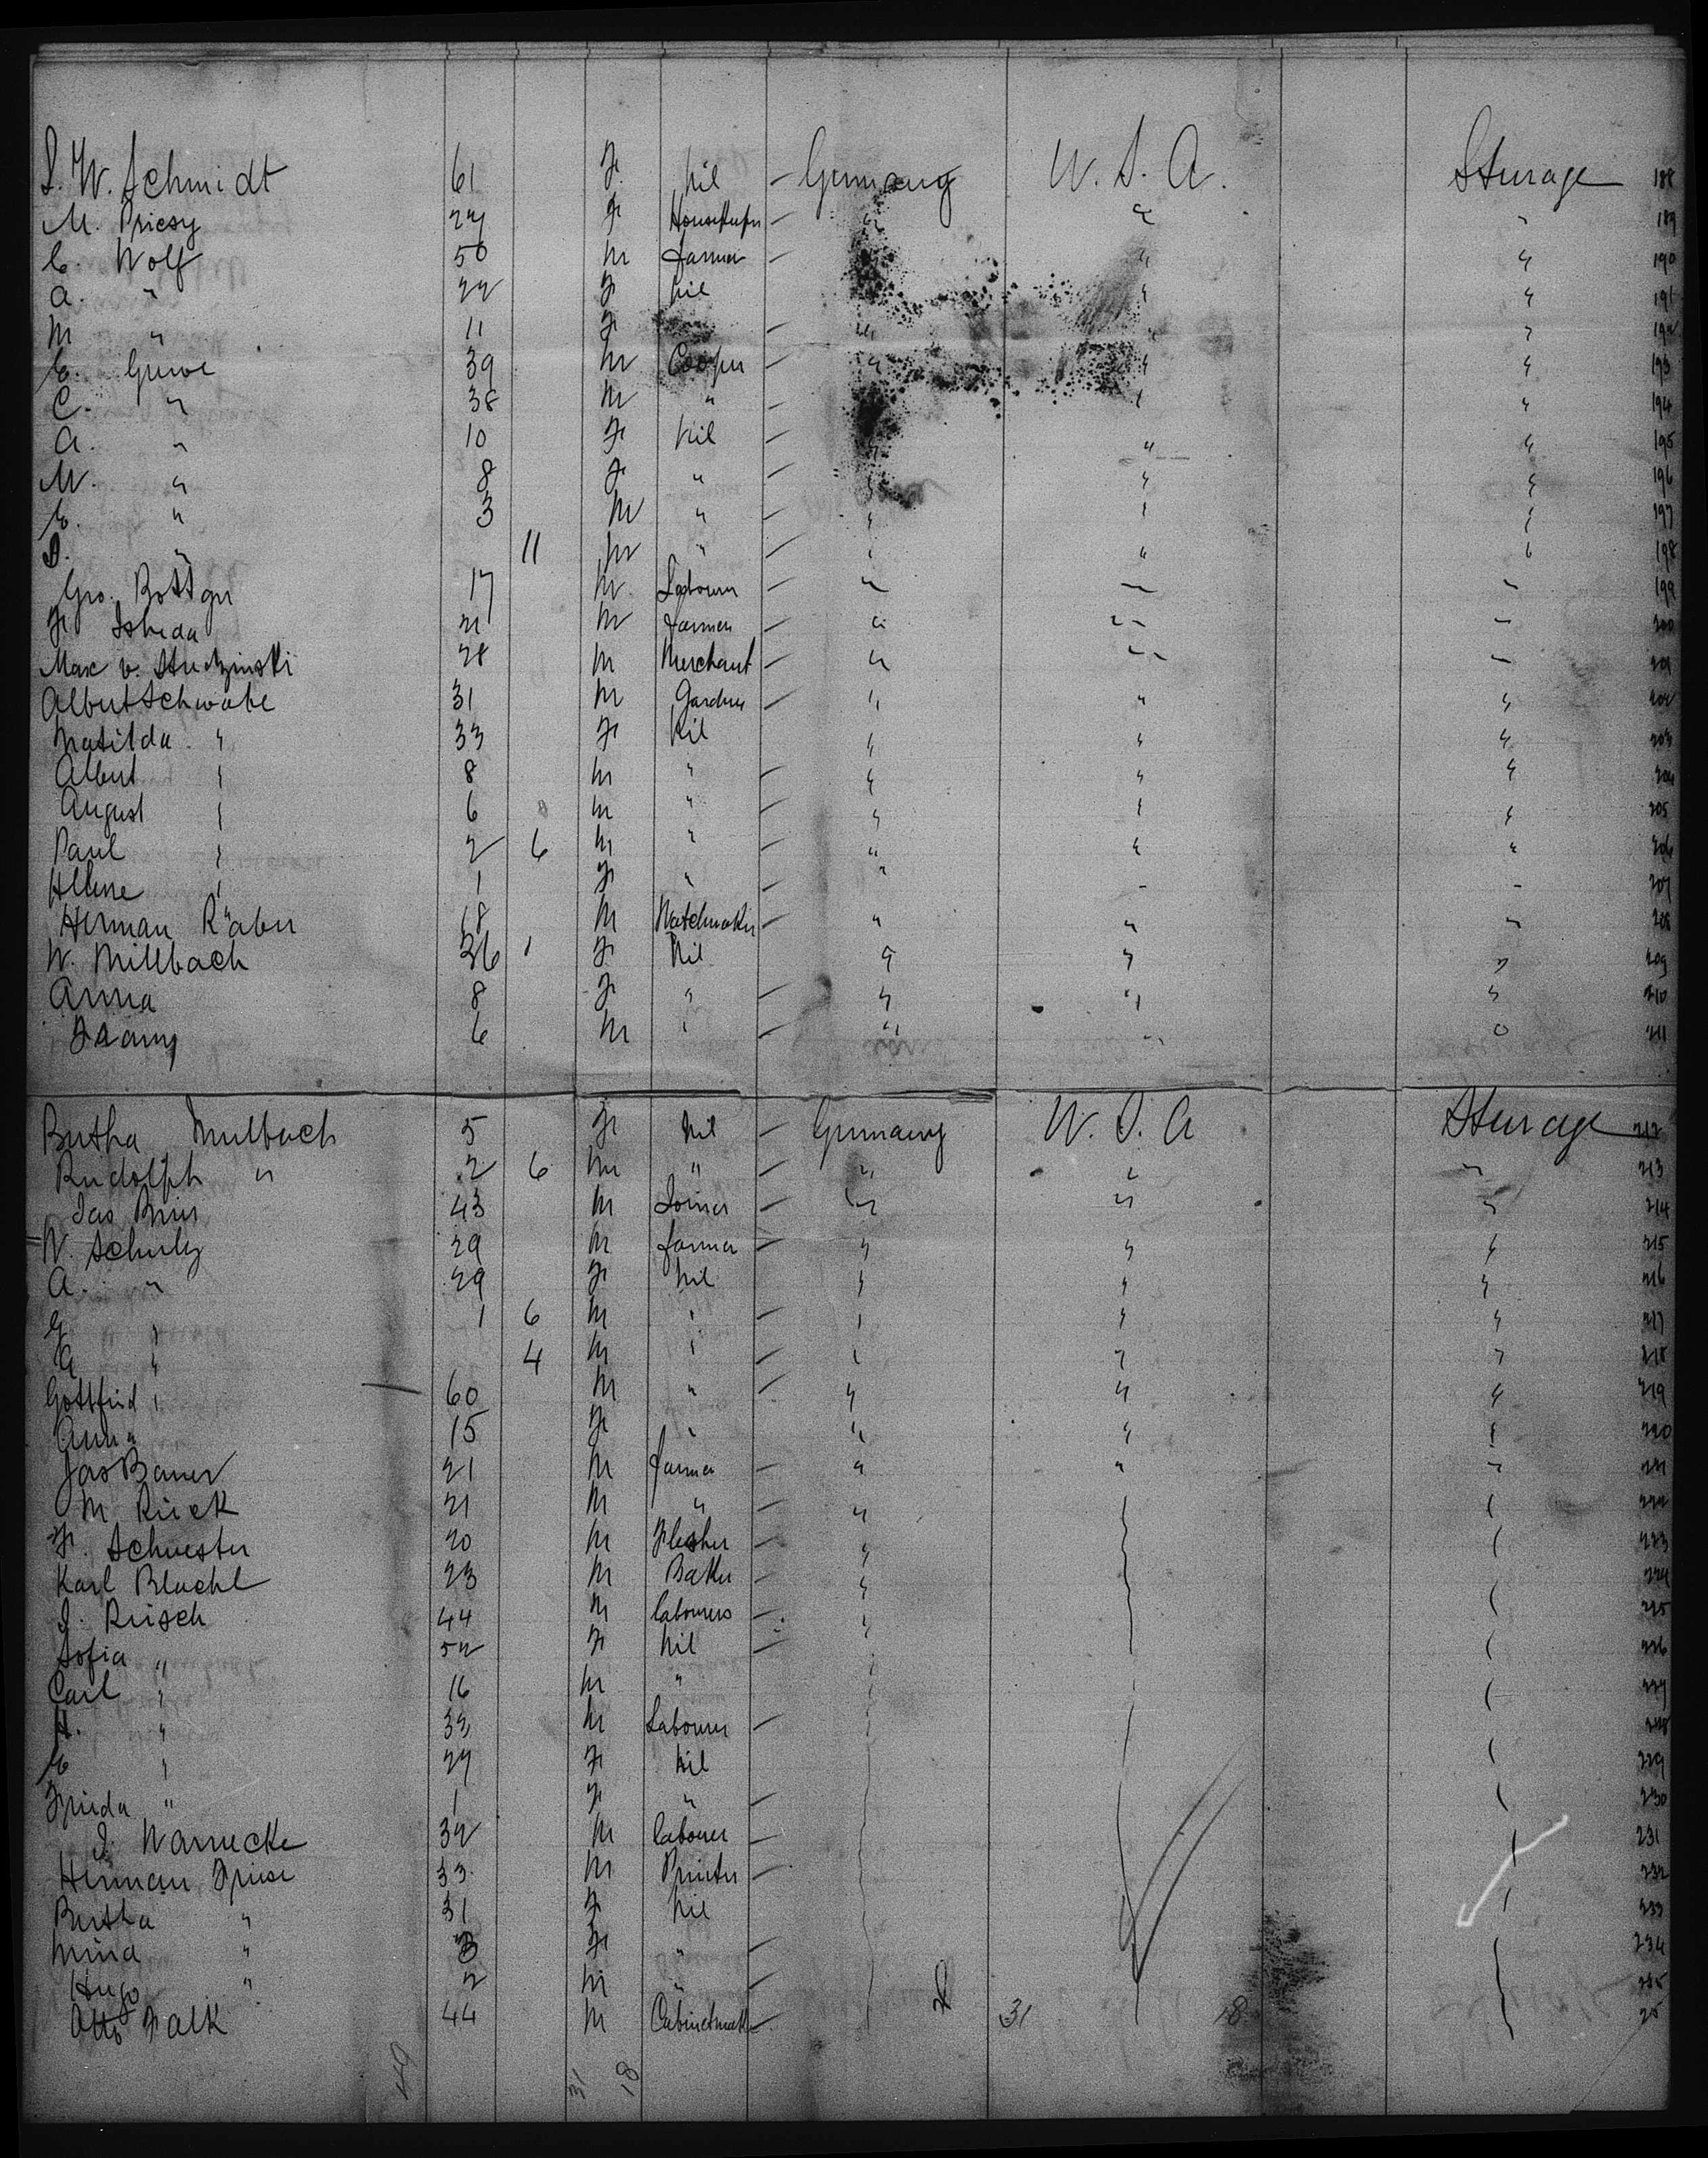 S. W. Schmidt 61 F Nil — Germany U. S. A. Steerage 188
M. Priesz 27 F Housekeeper — " " " 189
C. Wolf 50 M Farmer — " " " 190
A. " 22 F Nil " " " 191
M " 11 F — " " " 192
C. Grewe 39 M Cooper — " " " 193
C. " 38 M " — " " " 194
A. " 10 F Nil — " " " 195
M. " 8 F " — " " " 196
C. " 3 M " — " " " 197
" 11 M " — " " " 198
Geo. Bottger 17 M Labourer — " " " 199
F Isheda 21 M Farmer — " " " 200
Max v. Studzinski 28 M Merchant — " " " 201
Albert Schwabe 31 M Gardner — " " " 202
Matilda " 33 F Nil " " " 203
Albert " 8 M " — " " " 204
August " 6 M " — " " " 205
Paul " 2 6 M " — " " " 206
Helene " 1 F " — " " " 207
Herman Räber 18 M Watchmaker — " " " 208
W. Millbach 36 1 F Nil " " " 209
Anna 8 F " — " " " 210
Franz 6 M " — " " " 211
Bertha Mulbach 5 F Nil — Germany U. S. A Steerage 212
Rudolph " 2 6 M " — " " " 213
Jas 43 M Joiner — " " " 214
W. Schulz 29 M Farmer — " " " 215
A. " 29 F Nil " " " 216
G " 1 6 M " — " " " 217
A " 4 M " — " " " 218
Gottfried " 60 M " — " " " 219
Anna 15 F " " " " 220
Jas Bauer 21 M Farmer — " " " 221
M Rück 21 M " — " 222
F. Schuester 20 M Flesher — " 223
Karl Bluchl 23 M Baker — " 224
J. Reisch 44 M Labourers — " 225
Sofia " 52 F Nil — 226
Carl " 16 M " 227
H. " 33 M Labourer — 228
C " 27 F Nil 229
Frieda " 1 F " — 230
J. Warnecke 32 M Labourer — 231
Herman Friese 33 M Printer — 232
Bertha " 31 F Nil 233
Mina " 3 F " — 234
Hugo " 2 M " — 235
Otto Falk 44 M Cabinetmak — 31 18
49 31 18